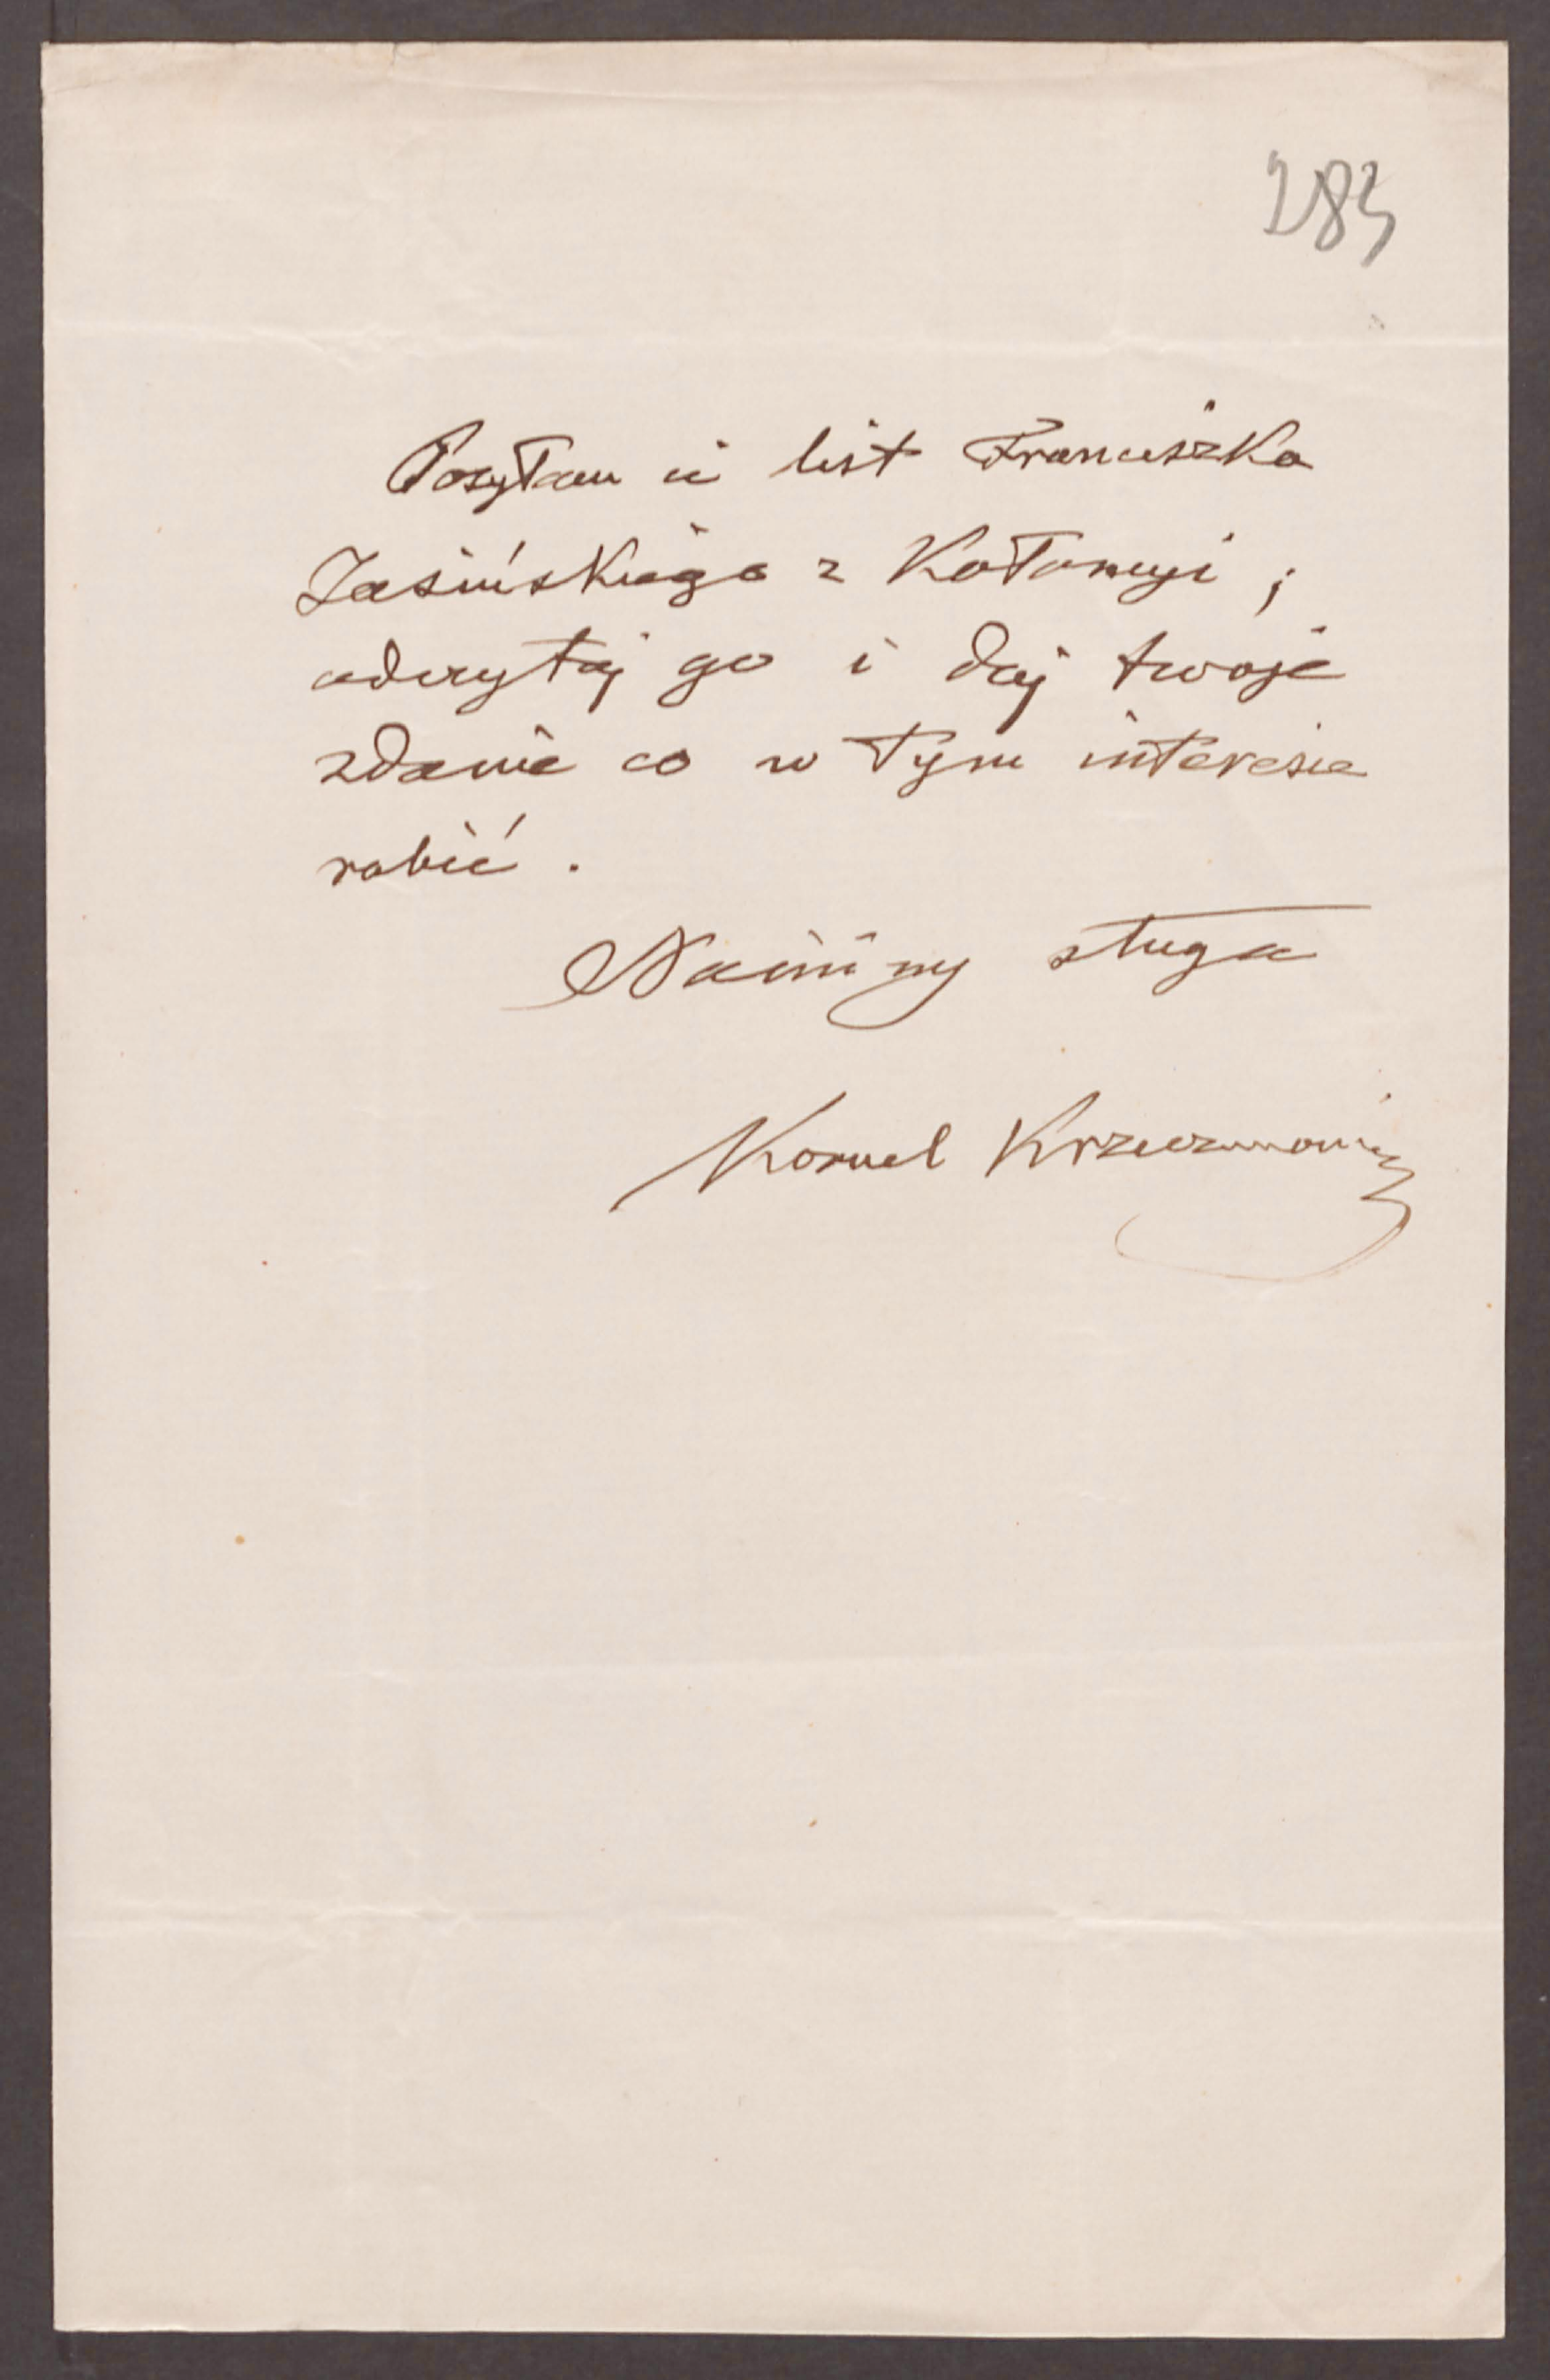 283
Posyłam ci list Franciszka
Jasińskiego z Kołomyi ;
odczytaj go i daj twoje
zdanie co w tym interesie
robić .
Nainiży sługa
Kornel Krzeczunowicz